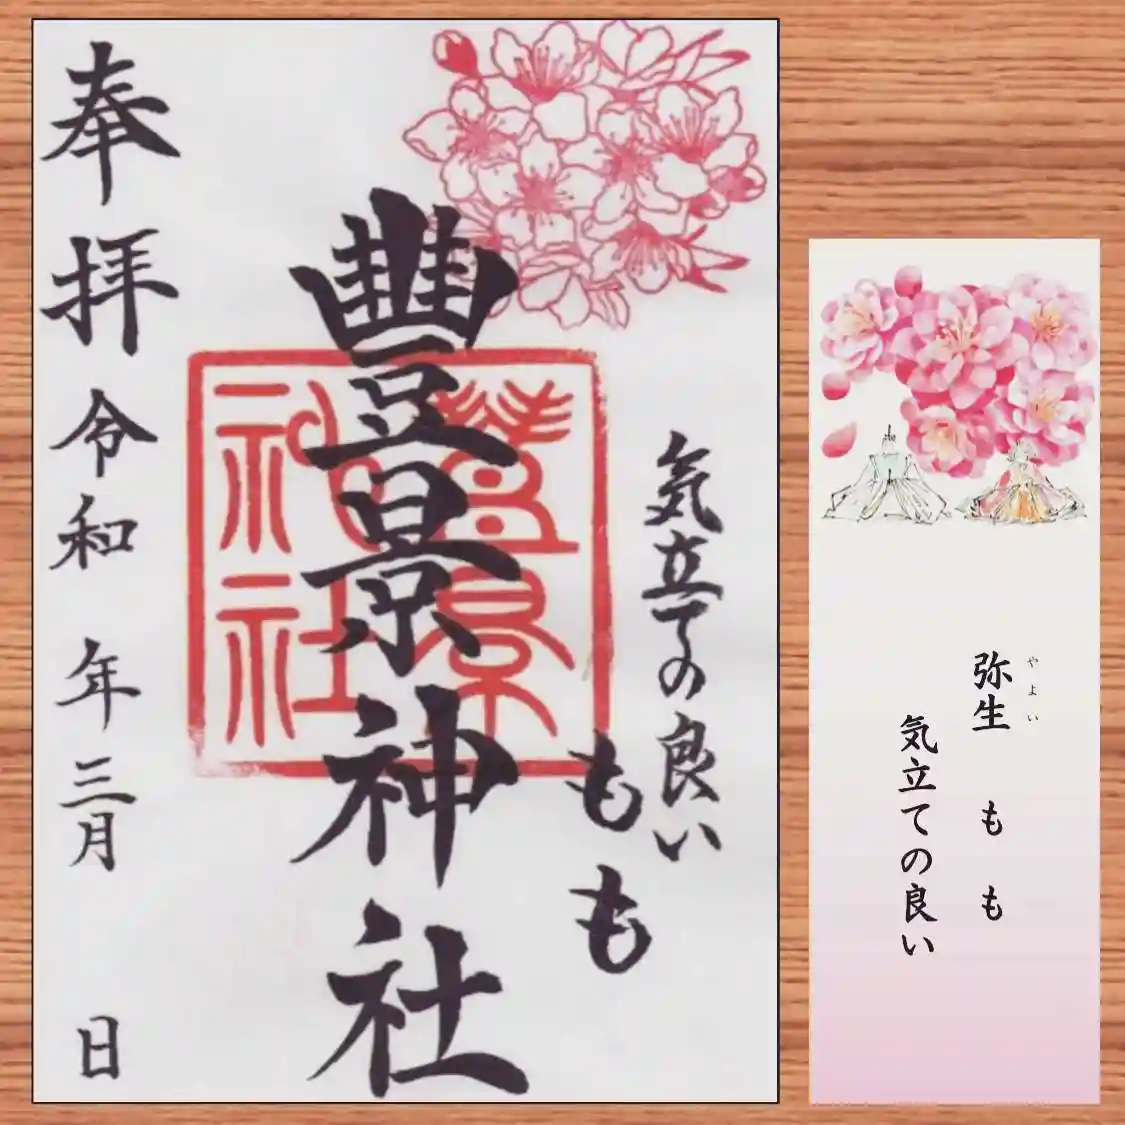 気立ての良い
もも
豊景神社
豊景神社
奉拝 令和 年 三月 日
弥生 もも
やよい
気立ての良い